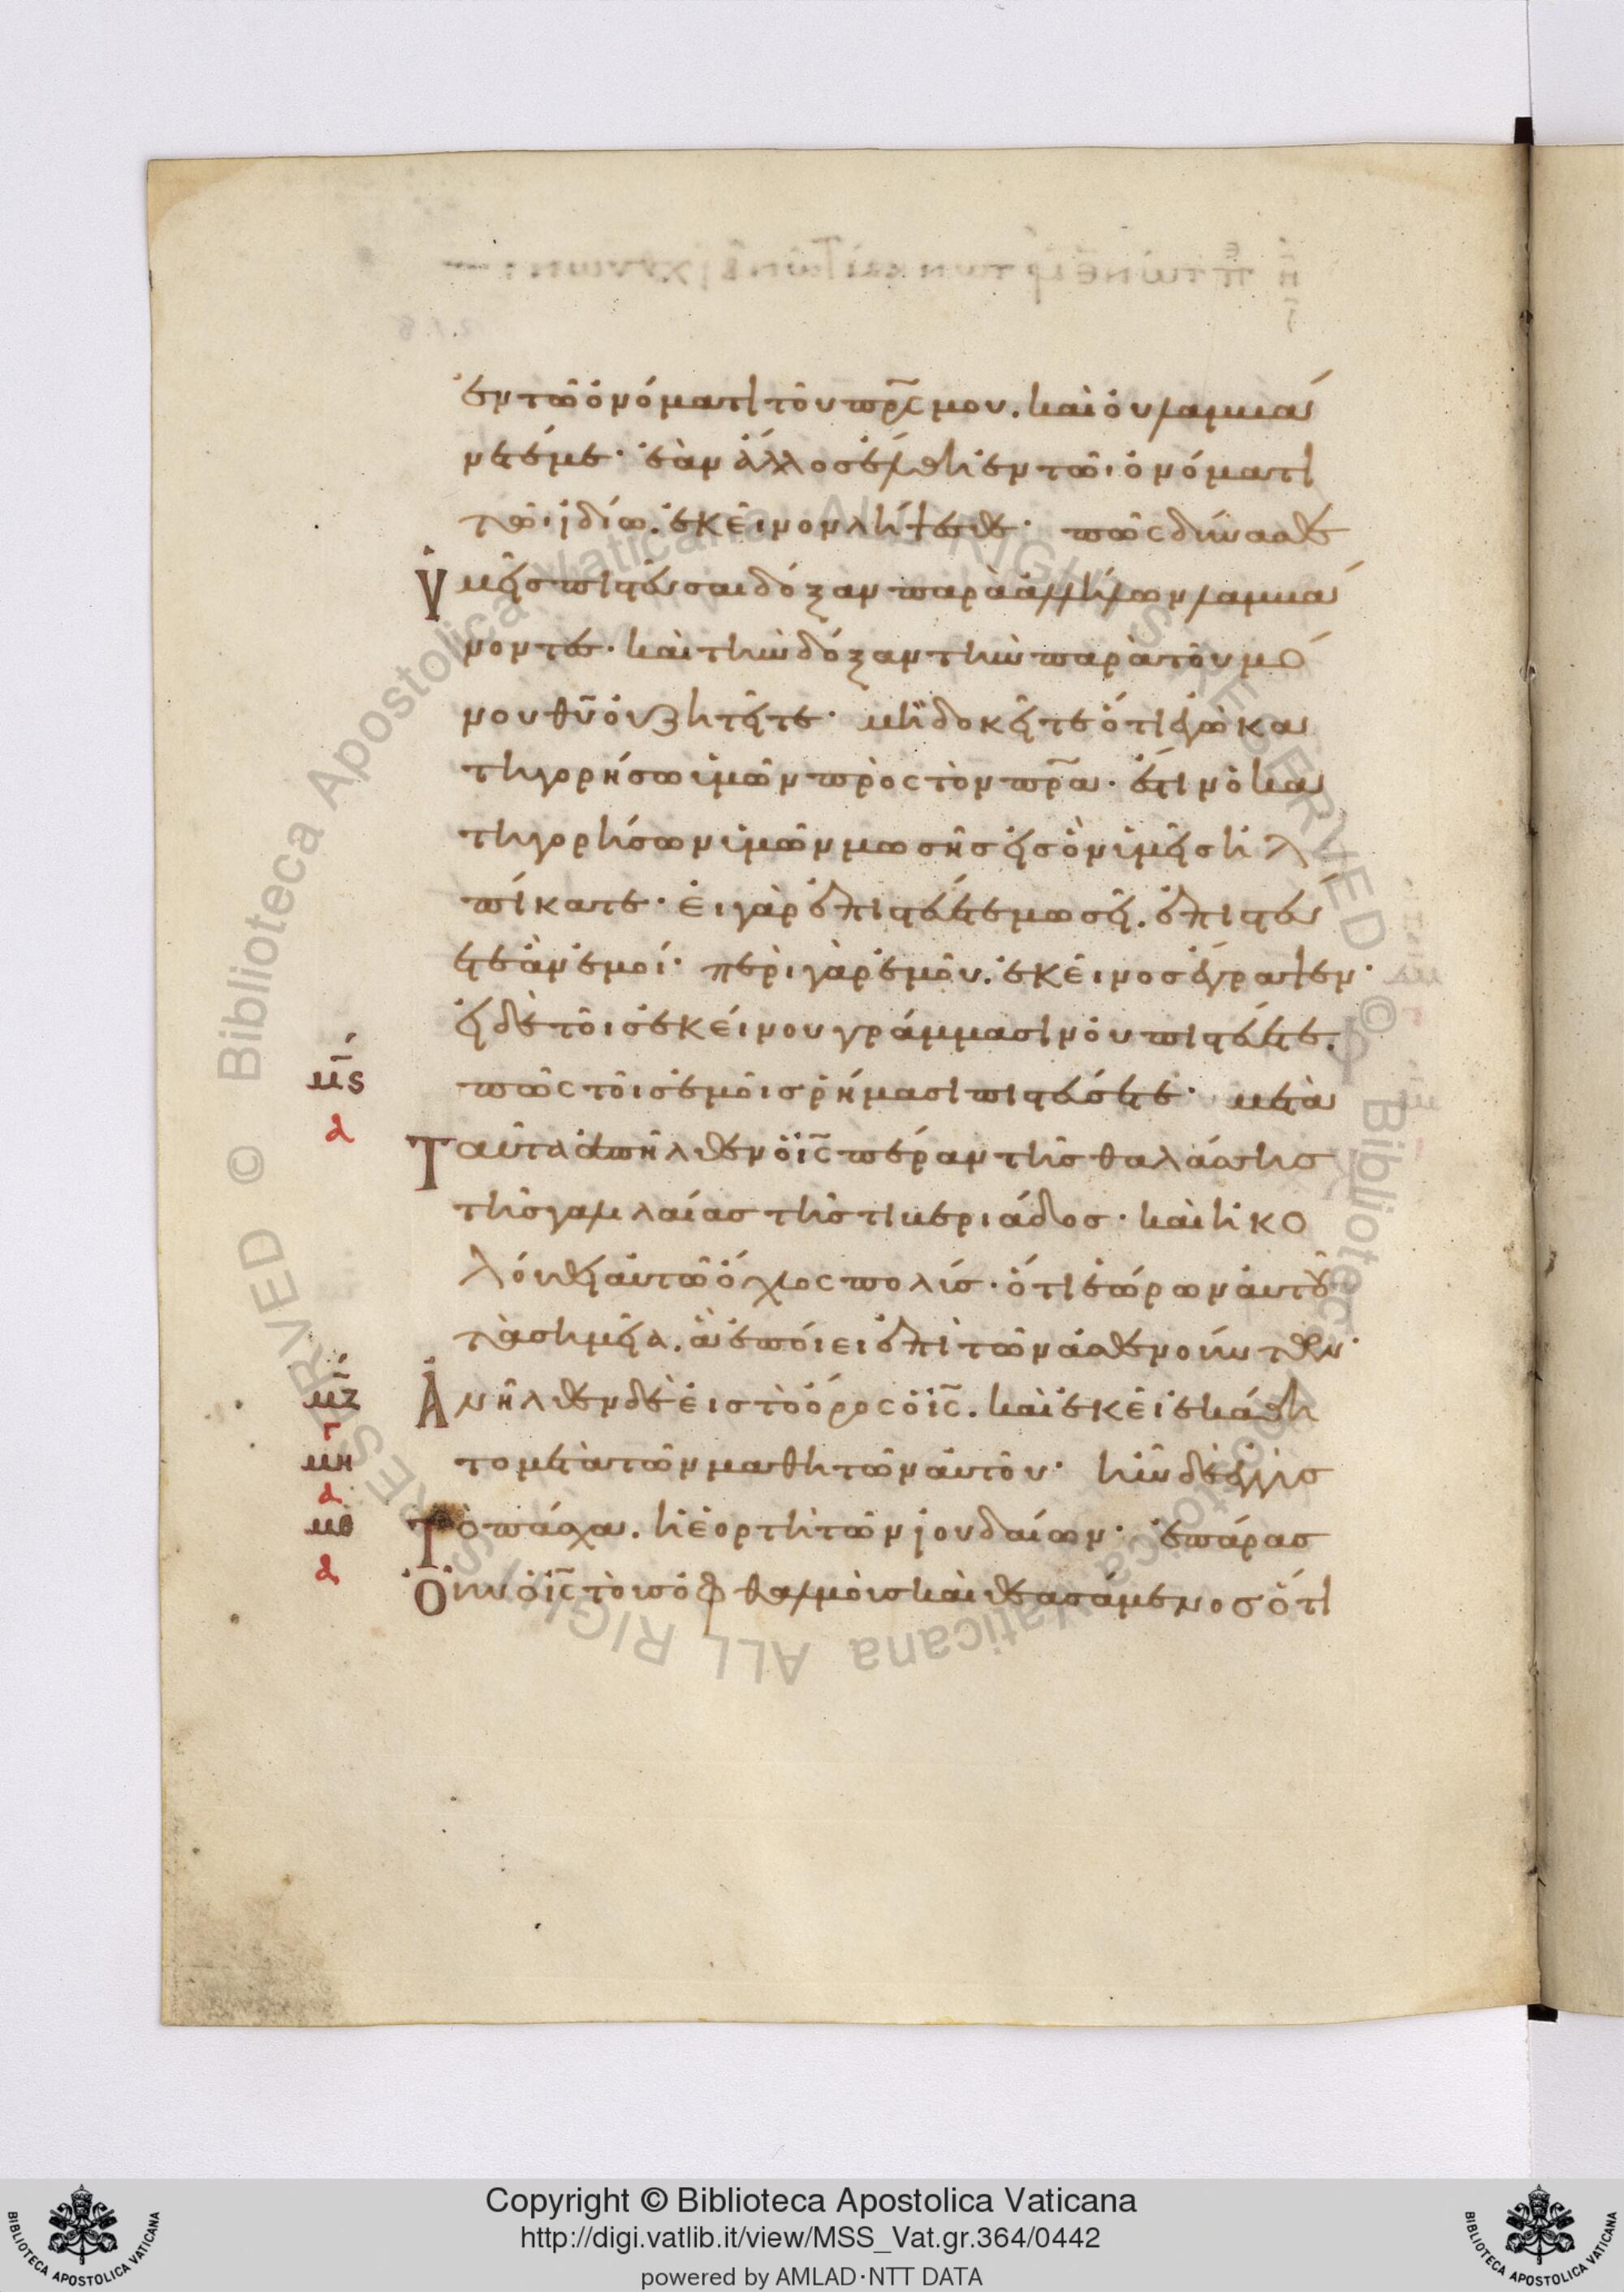 ἐν τῶ ὀνόματι τοῦ πρ̅ς μου. καὶ οὐ λαμβά
νετέ με· ἐὰν ἄλλος ἔλθη ἐν τῶι ὀνόματι
τῶι ἰδίω. ἐκεῖνον λήψεσθε· πῶς δύνασθε
ὑμεῖς πιστεῦσαι δόξαν παρὰ ἀλλήλων λαμβά
νοντες· καὶ τὴν δόξαν τὴν παρὰ τοῦ μό
νου θυ̅ οὐ ζητεῖτε· μὴ δοκεῖτε ὅτι ἐγὼ κα
τηγορήσω ὑμῶν πρὸς τὸν πρ̅α· ἔστιν ὁ κα
τηγορήσων ὑμῶν μωσῆς εἰς ὃν ὑμεῖς ἠλ
πίκατε· εἰ γὰρ ἐπιστεύετε μωσεῖ. ἐπιστεύ
ετε ἂν ἐμοί· περὶ γὰρ ἐμοῦ. ἐκεῖνος ἔγραψεν·
εἰ δὲ τοῖς ἐκείνου γράμμασιν οὐ πιστεύετε.
μ̅ς πῶς τοῖς ἐμοῖς ρήμασι πιστεύσετε· μετὰ
α
Ταῦτα ἀπῆλθεν ὁ ι̅ς πέραν τῆς θαλάσσης
τῆς γαλιλαίας τῆς τιβεριάδος· καὶ ἠκο
λούθει αὐτῶ ὄχλος πολύς· ὅτι ἑώρων αὐτοῦ
τὰ σημεῖα. ἃ ἐποίει ἐπὶ τῶν ἀσθενούντων·
μ̅ζ Ἀνῆλθεν δὲ εἰς τὸ ὄρος ὁ ι̅ς. καὶ ἐκεῖ ἐκάθη
γ
μη το μετὰ τῶν μαθητῶν αὐτοῦ· ἦν δὲ ἐγγὺς
α
μθ Τὸ πάσχα. ἡ ἑορτὴ τῶν ἰουδαίων· ἐπάρας
α
Οὖν ὁ ι̅ς τοὺς ὀφθαλμοὺς καὶ θεασάμενος ὅτι
Copyright © Biblioteca Apostolica Vaticana
http://digi.vatlib.it/view/MSS_Vat.gr.364/0442
powered by AMLAD·NTT DATA